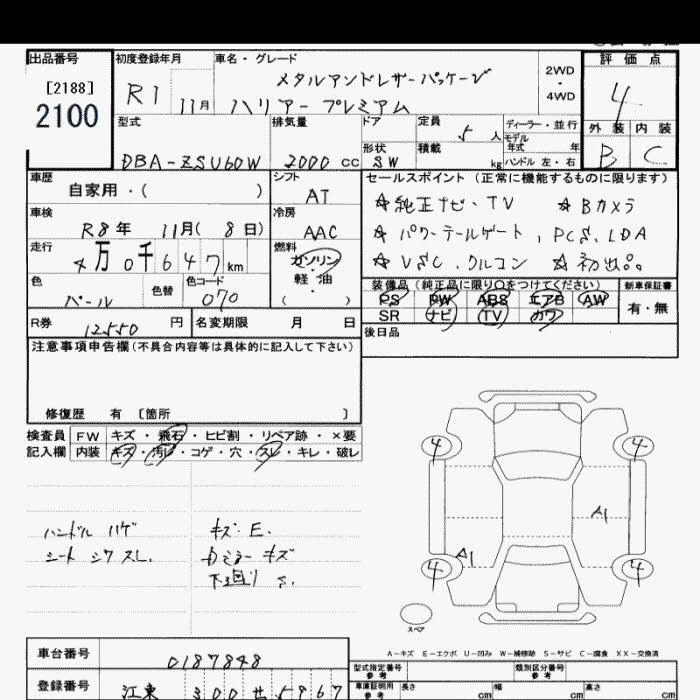 出品番号
[2188]
2100
初度登録年月
R1 11月
車名・グレード
メタルアンドレザーパッケージ
ハリアー プレミアム
2WD
・
4WD
評価点
4
外装 内装
B C
型式
DBA-ZSU60W
排気量
2000 cc
ドア
形状
SW
定員
5 人
積載
kg
ディーラー・並行
モデル
年式 年
ハンドル 左・右
車歴
自家用・( )
シフト
AT
車検
R8年 11月( 8日)
冷房
AAC
走行
4万0千647km
燃料
ガソリン
・
軽油
( )
色
パール
色替
色コード
070
R券
12550 円
名変期限
月 日
セールスポイント (正常に機能するものに限ります)
☆純正ナビ・TV ☆Bカメラ
☆パワーテールゲート、PCS、LDA
☆VSC、クルコン ☆初出品
装備品 (純正品に限り○をつけてください)
PS PW ABS エアB AW
SR ナビ TV カワ
新車保証書
有・無
後日品
注意事項申告欄(不具合内容等は具体的に記入して下さい)
修復歴 有 [箇所 ]
検査員
記入欄
FW キズ・飛石・ヒビ割・リペア跡・×要
内装 キズ・汚レ・コゲ・穴・スレ・キレ・破レ
ハンドル ハゲ
シート シワ スレ
キズ・E.
カミラー キズ
下廻り S.
4 4
A1
A1
4 4
スペア
A-キズ E-エクボ U-凹み W-補修跡 S-サビ C-腐食 XX-交換済
車台番号
0187848
登録番号
江東 300 せ 5967
型式指定番号
参考
類別区分番号
参考
車庫証明用
参考
長さ cm
幅 cm
高さ cm